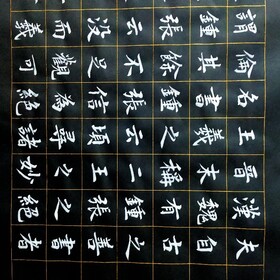 夫自古之善書者
漢魏有鍾張之絕
晉末稱二王之妙
王羲之云頃尋諸
名書鍾張信為絕
倫其餘不足觀可
謂鍾張云没而羲